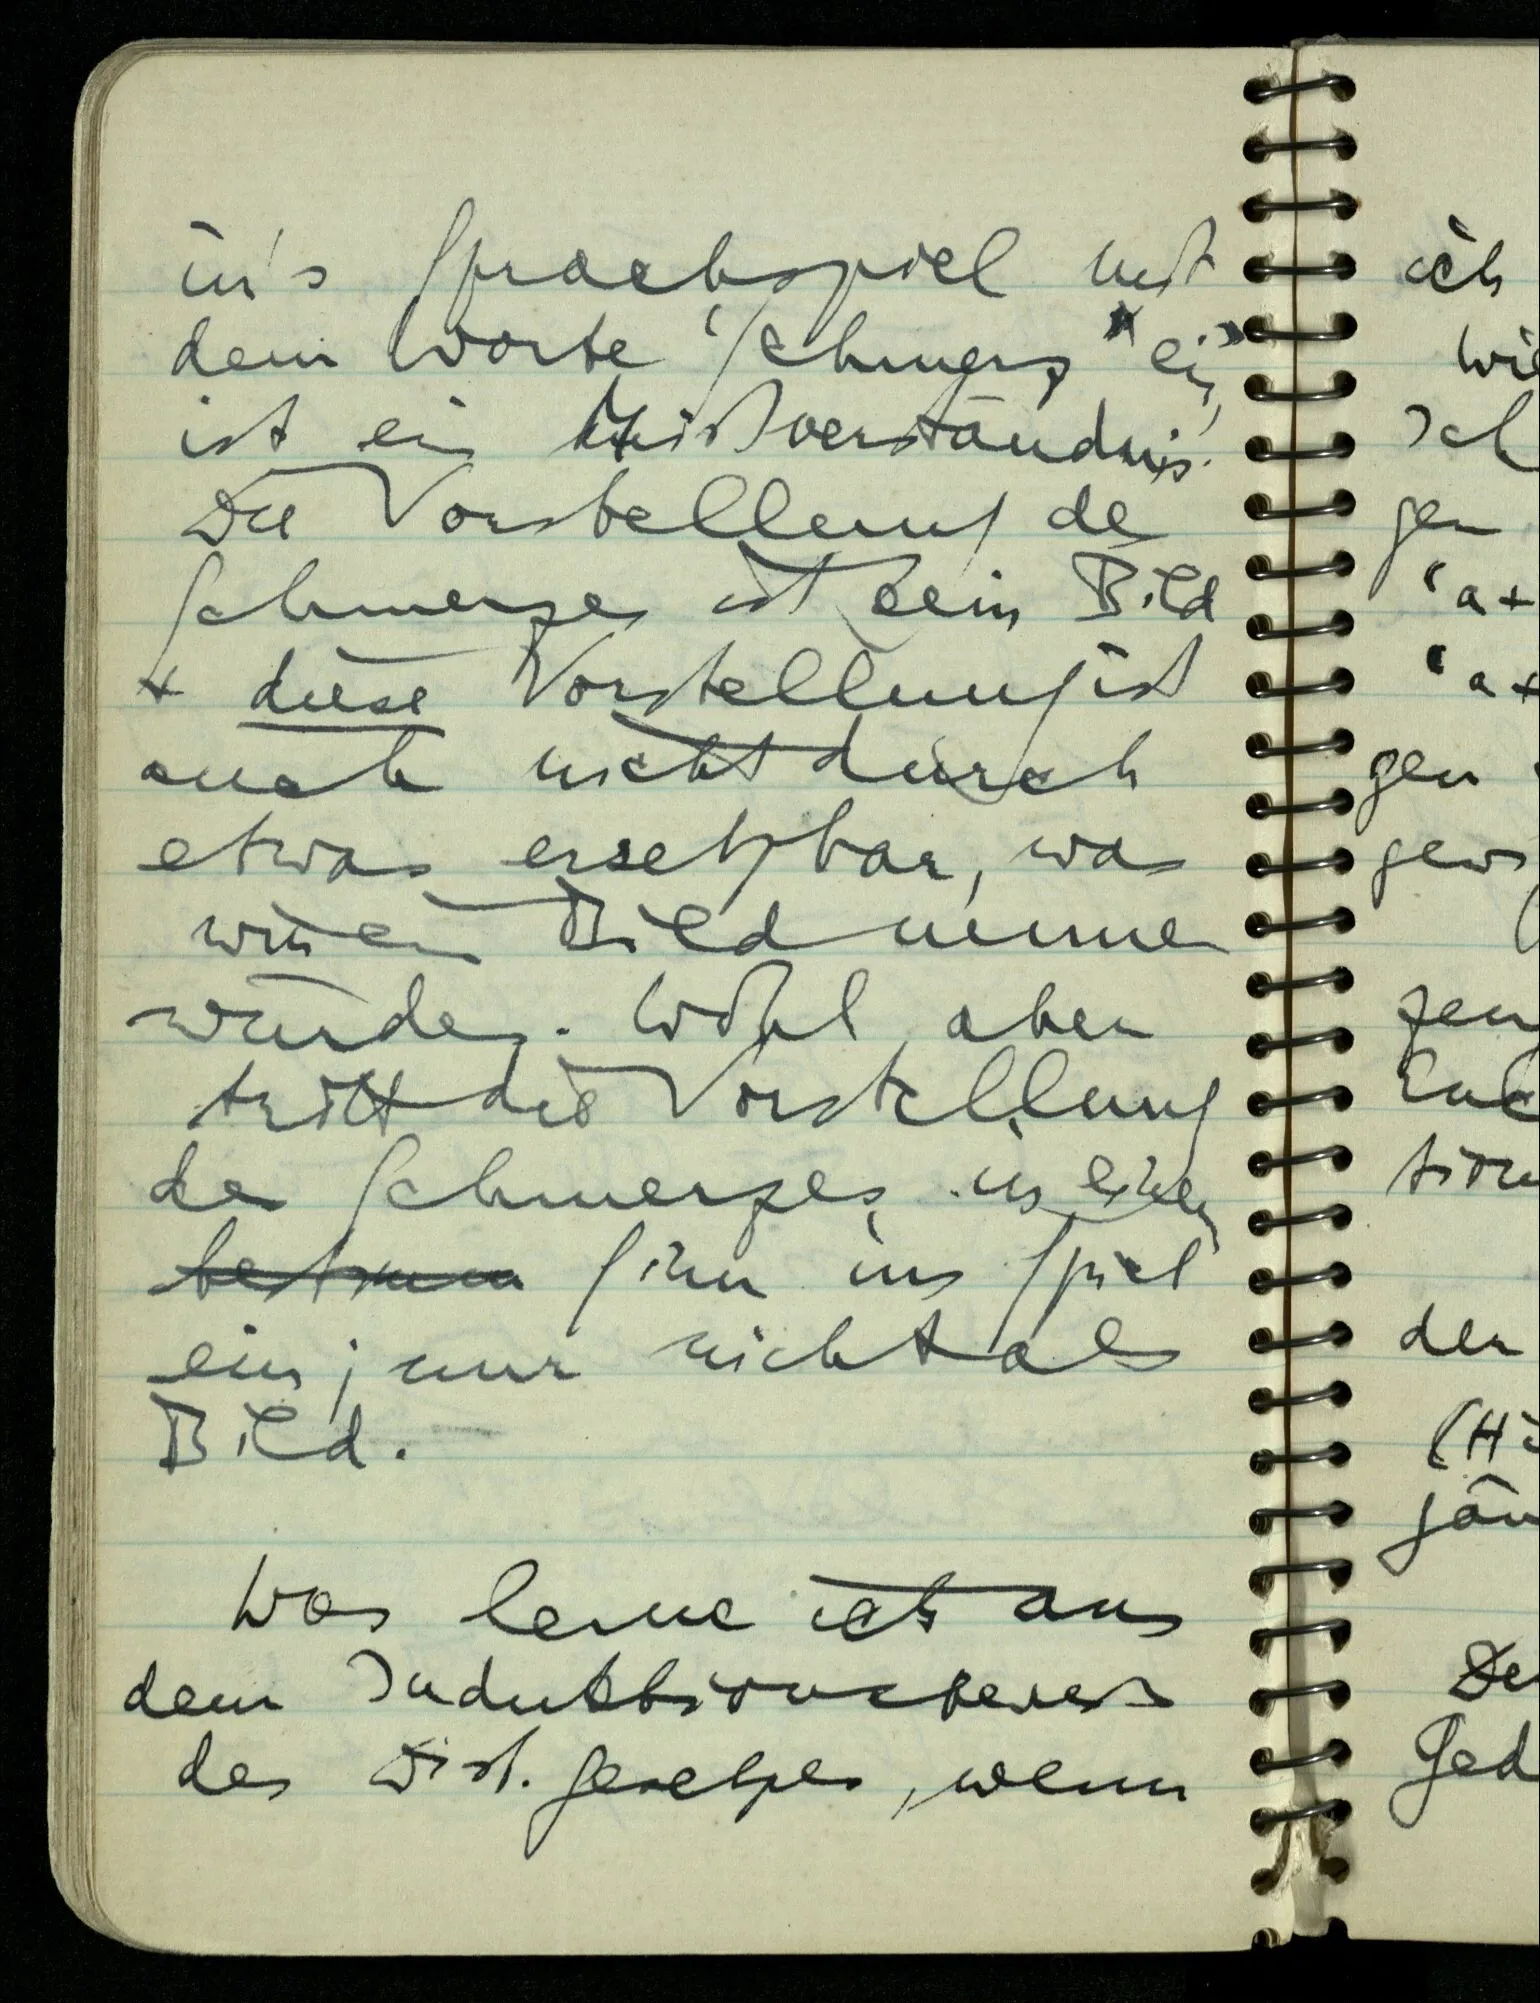 in's Sprachspiel mit
dem Worte “Schmerz” ein,
ist ein Mißverständnis.
Die Vorstellung des
Schmerzes ist kein Bild
+ diese Vorstellung ist
auch nicht durch
etwas ersetzbar, was
wir ein Bild nennen
würden. Wohl aber
tritt die Vorstellung
des Schmerzes in einem
Sinn ins Spiel
ein; nur nicht als
Bild.
Was lerne ich aus
dem Induktionsbeweis
des Dist. Gesetzes, wenn
ich
gen
“a+
“a+
gen
den